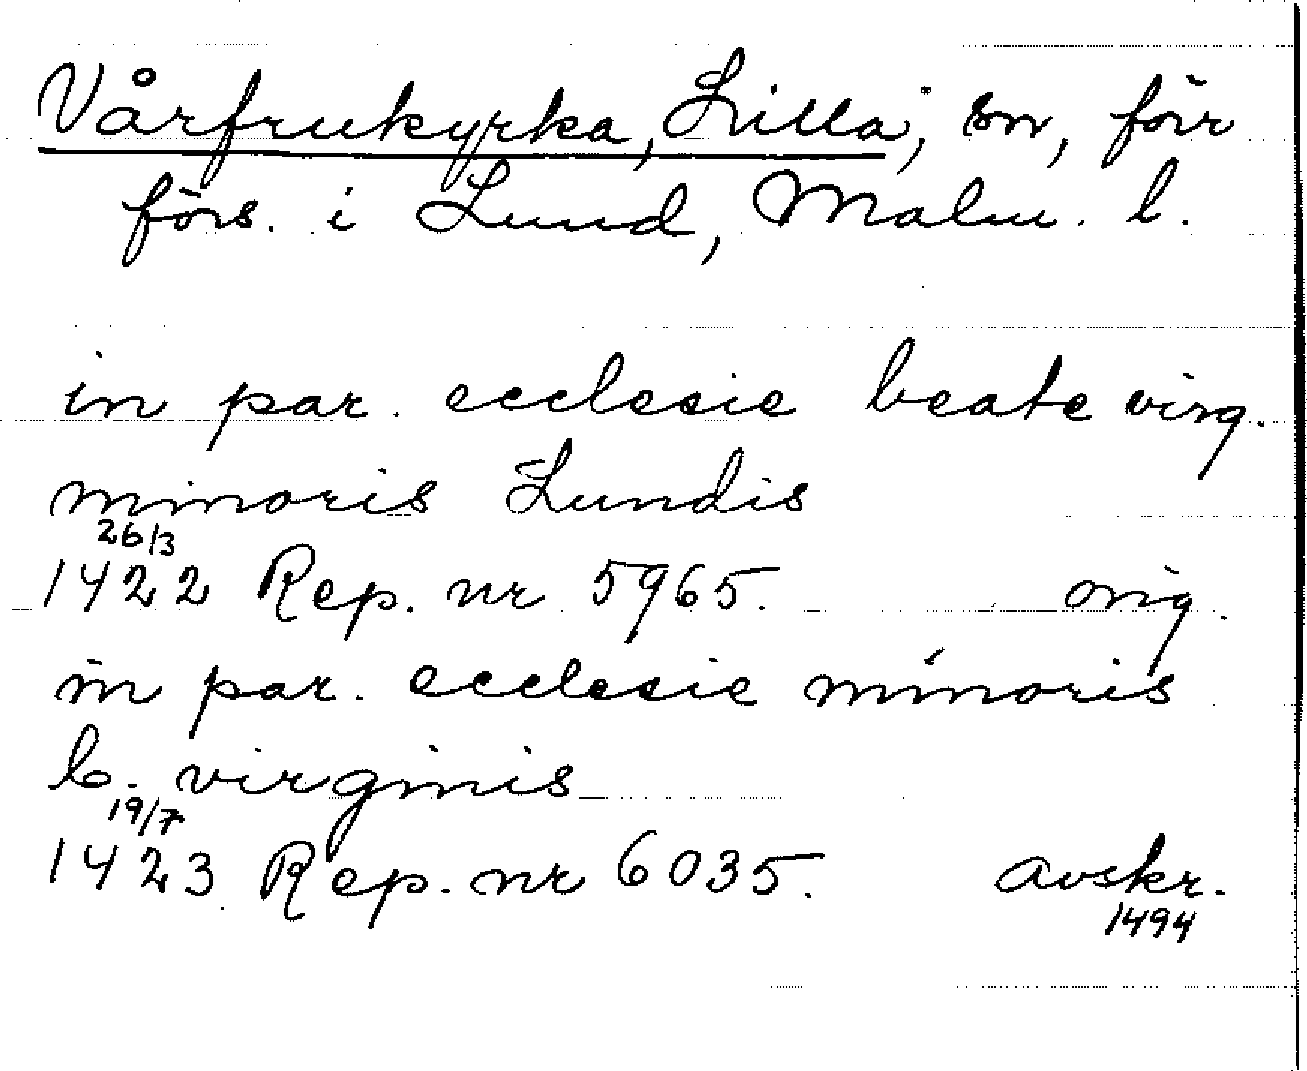 Vårfrukyrka, Lilla, sn, förr
förs. i Lund, Malm. l.
in par. ecclesie beate virg.
minoris Lundis
26/3
1422 Rep. nr 5965. orig.
in par. ecclesie minoris
b. virginis
19/7
1423 Rep. nr 6035. avskr.
1494